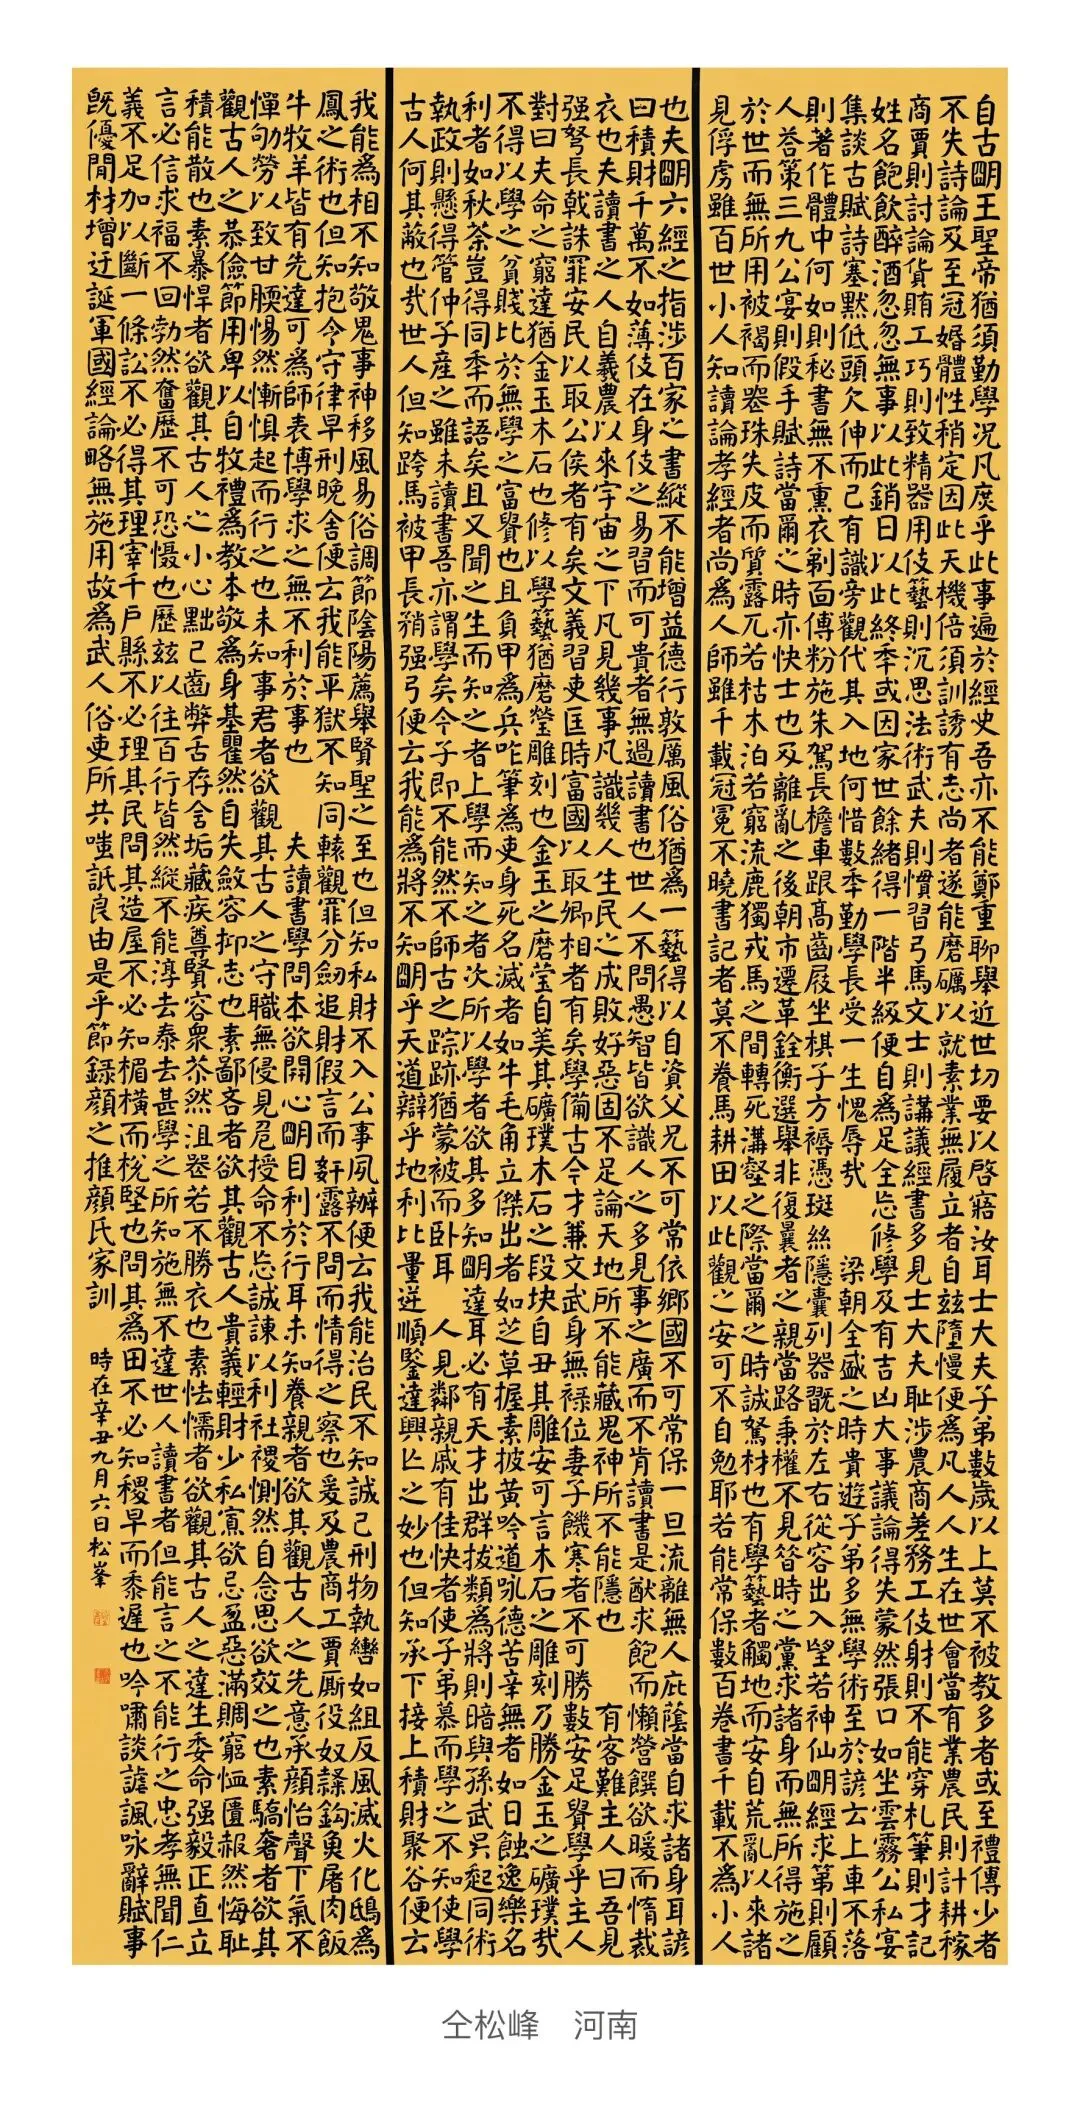 自古明王聖帝猶須勤學況凡庶乎此事遍於經史吾亦不能鄭重聊舉近世切要以啓寤汝耳士大夫子弟數歲以上莫不被教多者或至禮傳少者
不失詩論及至冠婚體性稍定因此天機倍須訓誘有志尚者遂能磨礪以就素業無履立者自茲墮慢便為凡人人生在世會當有業農民則計耕稼
商賈則討論貨賄工巧則致精器用伎藝則沉思法術武夫則慣習弓馬文士則講議經書多見士大夫恥涉農商差務工伎財則不能穿札筆則才記
姓名飽飲醉酒忽忽無事以此銷日以此終年或因家世餘緒得一階半級便自為足全忘修學及有吉凶大事議論得失蒙然張口如坐雲霧公私宴
集談古賦詩塞默低頭欠伸而已有識旁觀代其入地何惜數年勤學長受一生愧辱哉　梁朝全盛之時貴遊子弟多無學術至於諺云上車不落
則著作體中何如則秘書無不熏衣剃面傅粉施朱駕長檐車跟高齒屐坐棋子方褥憑斑絲隱囊列器既於左右從容出入望若神仙明經求第則顧
人荅策三九公宴則假手賦詩當爾之時亦快士也及離亂之後朝市遷革銓衡選舉非復曩者之親當路秉權不見昔時之黨求諸身而無所得施之
於世而無所用被褐而喪珠失皮而質露兀若枯木泊若窮流鹿獨戎馬之間轉死溝壑之際當爾之時誠駑材也有學藝者觸地而安自荒亂以來諸
見俘虜雖百世小人知讀論孝經者尚為人師雖千載冠冕不曉書記者莫不養馬耕田以此觀之安可不自勉耶若能常保數百卷書千載不為小人
也夫明六經之指涉百家之書縱不能增益德行敦厲風俗猶為一藝得以自資父兄不可常依鄉國不可常保一旦流離無人庇蔭當自求諸身耳諺
曰積財千萬不如薄伎在身伎之易習而可貴者無過讀書也世人不問愚智皆欲識人之多見事之廣而不肯讀書是猷求飽而懶營饌欲暖而惰裁
衣也夫讀書之人自羲農以來宇宙之下凡見幾事凡識幾人生民之成敗好惡固不足論天地所不能藏鬼神所不能隱也　有客難主人曰吾見
强弩長戟誅罪安民以取公侯者有矣文義習吏匡時富國以取卿相者有矣學備古今才兼文武身無祿位妻子饑寒者不可勝數安足貴學乎主人
對曰夫命之窮達猶金玉木石也修以學藝猶磨瑩雕刻也金玉之磨瑩自美其礦璞木石之段块自丑其雕刻安可言木石之雕刻乃勝金玉之礦璞哉
不得以學之貧賤比於無學之富貴也且負甲為兵咋筆為吏身死名滅者如牛毛角立傑出者如芝草握素披黃吟道咏德苦辛無者如日蝕逸樂名
利者如秋荼豈得同年而語矣且又聞之生而知之者上學而知之者次所以學者欲其多知明達耳必有天才出群拔類為將則暗與孫武吳起同術
執政則懸得管仲子產之雖未讀書吾亦謂學矣今子即不能然不師古之踪跡猶蒙被而卧耳　人見鄰親戚有佳快者使子弟慕而學之不知使學
古人何其蔽也哉世人但知跨馬被甲長矟强弓便云我能為將不知明乎天道辯乎地利比量逆順鑒達興亡之妙也但知承下接上積財聚谷便云
我能為相不知敬鬼事神移風易俗調節陰陽薦舉賢聖之至也但知私財不入公事夙辦便云我能治民不知誠己刑物執轡如組反風滅火化鴟為
鳳之術也但知抱令守律早刑晚舍便云我能平獄不知同轅觀罪分劍追財假言而奸露不問而情得之察也爰及農商工賈厮役奴隸釣魚屠肉飯
牛牧羊皆有先達可為師表博學求之無不利於事也　夫讀書學問本欲開心明目利於行耳未知養親者欲其觀古人之先意承顏怡聲下氣不
憚劬勞以致甘腝惕然慚惧起而行之也未知事君者欲觀其古人之守職無侵見危授命不忘誠諫以利社稷惻然自念思欲效之也素驕奢者欲其
觀古人之恭儉節用卑以自牧禮為教本敬為身基瞿然自失斂容抑志也素鄙吝者欲其觀古人貴義輕財少私寡欲忌盈惡滿賙窮恤匱赧然悔恥
積能散也素暴悍者欲觀其古人之小心黜己齒弊舌存含垢藏疾尊賢容衆苶然沮喪若不勝衣也素怯懦者欲觀其古人之達生委命强毅正直立
言必信求福不回勃然奮歷不可恐懾也歷茲以往百行皆然縱不能淳去泰去甚學之所知施無不達世人讀書者但能言之不能行之忠孝無聞仁
義不足加以斷一條訟不必得其理宰千户縣不必理其民問其造屋不必知楣橫而梲堅也問其為田不必知稷早而黍遲也吟嘯談謔諷咏辭賦事
既優閒材增迂誕軍國經論略無施用故為武人俗吏所共嗤詆良由是乎節録顏之推顏氏家訓　時在辛丑九月六日松峯
仝松峰　河南